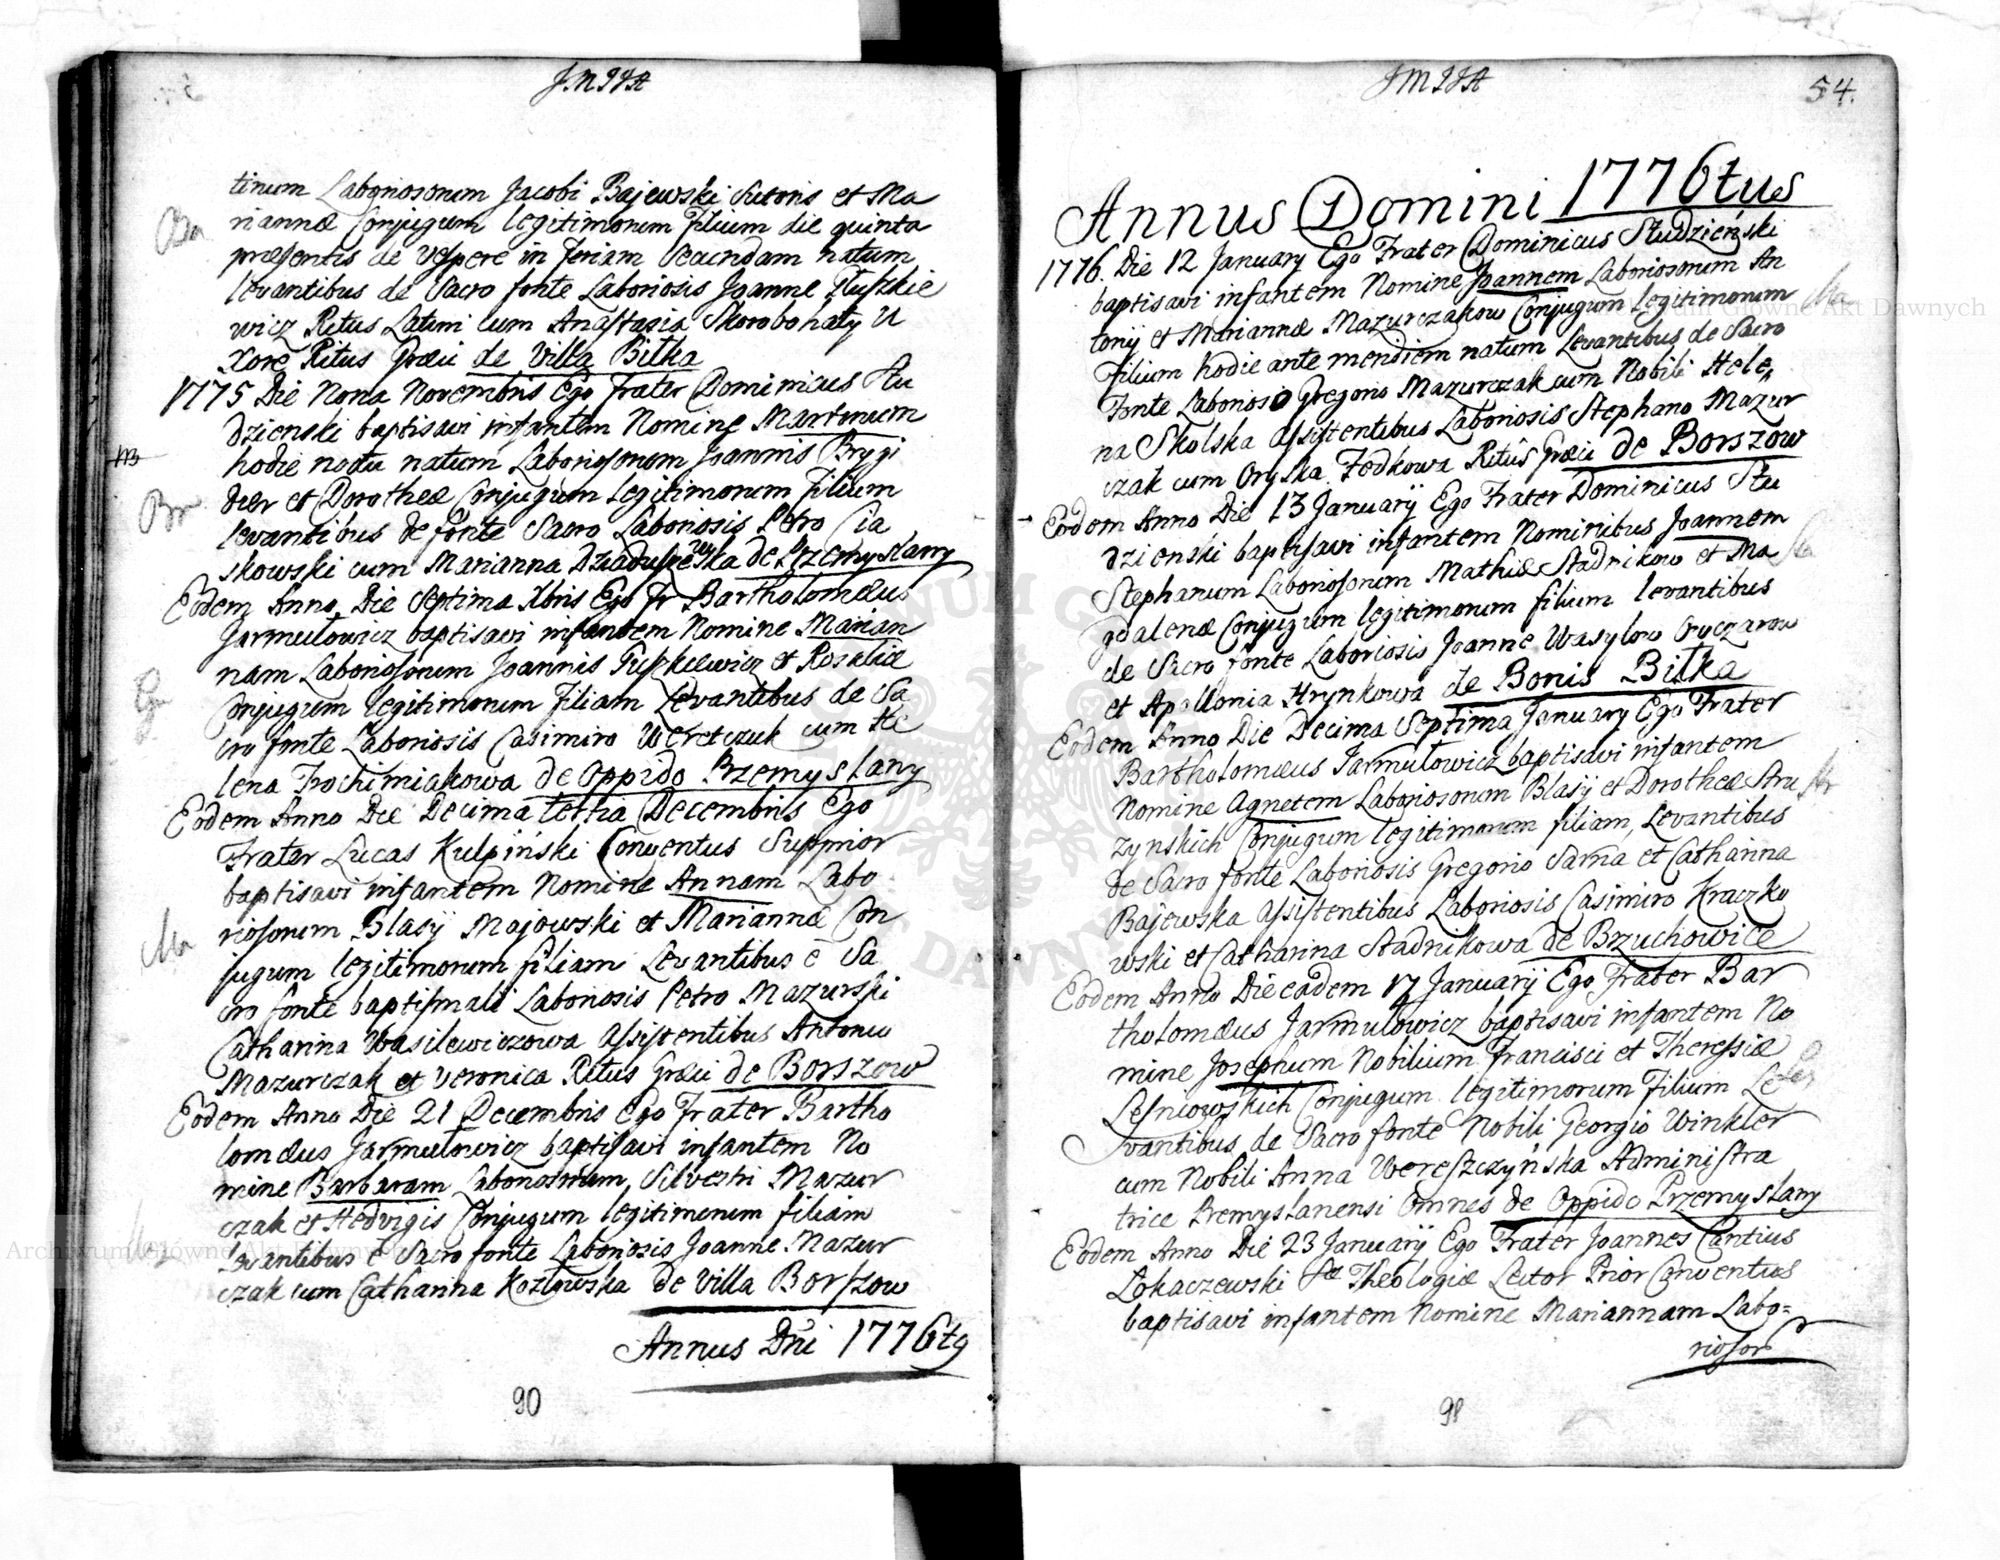 J.M.J.J.A
tinum Laboriosorum Jacobi Bajewski Sutoris et Ma
riannæ Conjugum legitimorum Filium die quinta
præsentis de Vespere in feriam Secundam natum
levantibus de Sacro fonte Laboriosis Joanne Tluszkie
wicz Ritus Latini cum Anastasia Skorobohaty U
xore Ritus Græci de Villa Bitka
1775 Die Nona Novembris Ego Frater Dominicus Stu
dzienski baptisavi infantem Nomine Martinum
hodie noctu natum Laboriosorum Joannis Brygi
der et Dorotheæ Conjugum legitimorum Filium
levantibus de fonte Sacro Laboriosis Petro Cia
skowski cum Marianna de Przemyslany
Eodem Anno Die Septima Xbris Ego Fr Bartholomæus
Jarmułowicz baptisavi infantem Nomine Marian
nam Laboriosorum Joannis et Rosaliæ
Conjugum legitimorum Filiam Levantibus de Sa
cro fonte Laboriosis Casimiro Weretczuk cum He
lena Trochimiakowa de Oppido Przemyslany
Eodem Anno Die Decima tertia Decembris Ego
Frater Lucas Kulpiński Conventus Supprior
baptisavi infantem Nomine Annam Labo
riosorum Blasij Majowski et Mariannæ Con
jugum legitimorum filiam Levantibus e Sa
cro fonte baptismali Laboriosis Petro Mazurski
Catharina Wasilewiczowa Assistentibus Antonio
Mazurczak et Veronica Ritus Græci de Borszow
Eodem Anno Die 21 Decembris Ego Frater Bartho
lomæus Jarmułowicz baptisavi infantem No
mine Barbaram Laboriosorum, Silvestri Mazur
czak et Hedvigis Conjugum legitimorum filiam
Levantibus e Sacro fonte Laboriosis Joanne Mazur
czak cum Catharina Kozłowska de Villa Borszow
Annus Dñi 1776tg
90
Ba
Br
Gu
Ma
Maz
J M J J A
54.
Annus Domini 1776tus
1776. Die 12 January Ego Frater Dominicus Studzieński
baptisavi infantem Nomine Joannem Laboriosorum An
tonij et Mariannæ Mazurczakow Conjugum legitimorum
Filium hodie ante meridiem natum Levantibus de Sacro
Fonte Laborioso Gregorio Mazurczak cum Nobili Hele
na Skolska Assistentibus Laboriosis Stephano Mazur
czak cum Oryska Fedkowa Ritûs Græci de Borszow
Eodem Anno Die 13 Januarij Ego Frater Dominicus Stu
dzienski baptisavi infantem Nominibus Joannem
Stephanum Laboriosorum Mathiæ Stadnikow et Ma
gdalenæ Conjugum legitimorum filium levantibus
de Sacro fonte Laboriosis Joanne Wasylow Oryczarow
et Apollonia Hrynkowa de Bonis Bitka
Eodem Anno Die Decima Septima January Ego Frater
Bartholomæus Jarmułowicz baptisavi infantem
Nomine Agnetem Laboriosorum Blasij et Dorotheæ Stru
zynskich Conjugum legitimorum filiam, Levantibus
de Sacro fonte Laboriosis Gregorio Sarna et Catharina
Bajewska Assistentibus Laboriosis Casimiro Kraczko
wski et Catharina Stadnikowa de Brzuchowice
Eodem Anno Die eadem 17 Januarij Ego Frater Bar
tholomæus Jarmułowicz baptisavi infantem No
mine Josephum Nobilium Francisci et Theresiæ
Leśniowskich Conjugum legitimorum Filium Le
vantibus de Sacro fonte Nobili Georgio Winkler
cum Nobili Anna Wereszczyńska Administra
trice Premyslanensi Omnes de Oppido Przemyslany
Eodem Anno Die 23 Januarij Ego Frater Joannes Cantius
Lokaczewski Sæ Theologiæ Lector Prior Conventus
baptisavi infantem Nomine Mariannam Labo=
riosor
98
Ma
Sta
Str
Les
Archiwum Główne Akt Dawnych
Archiwum Główne Akt Dawnych